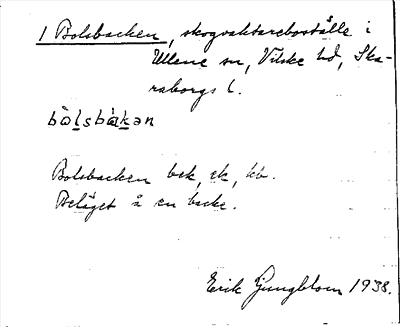 1 Bolsbacken, skogvaktareboställe i
Ullene sn, Vilske hd, Ska-
raborgs l.
bò̀lsbàkən
Bolsbacken bek, ek, kb.
Beläget å en backe.
Erik Ljungblom 1938.